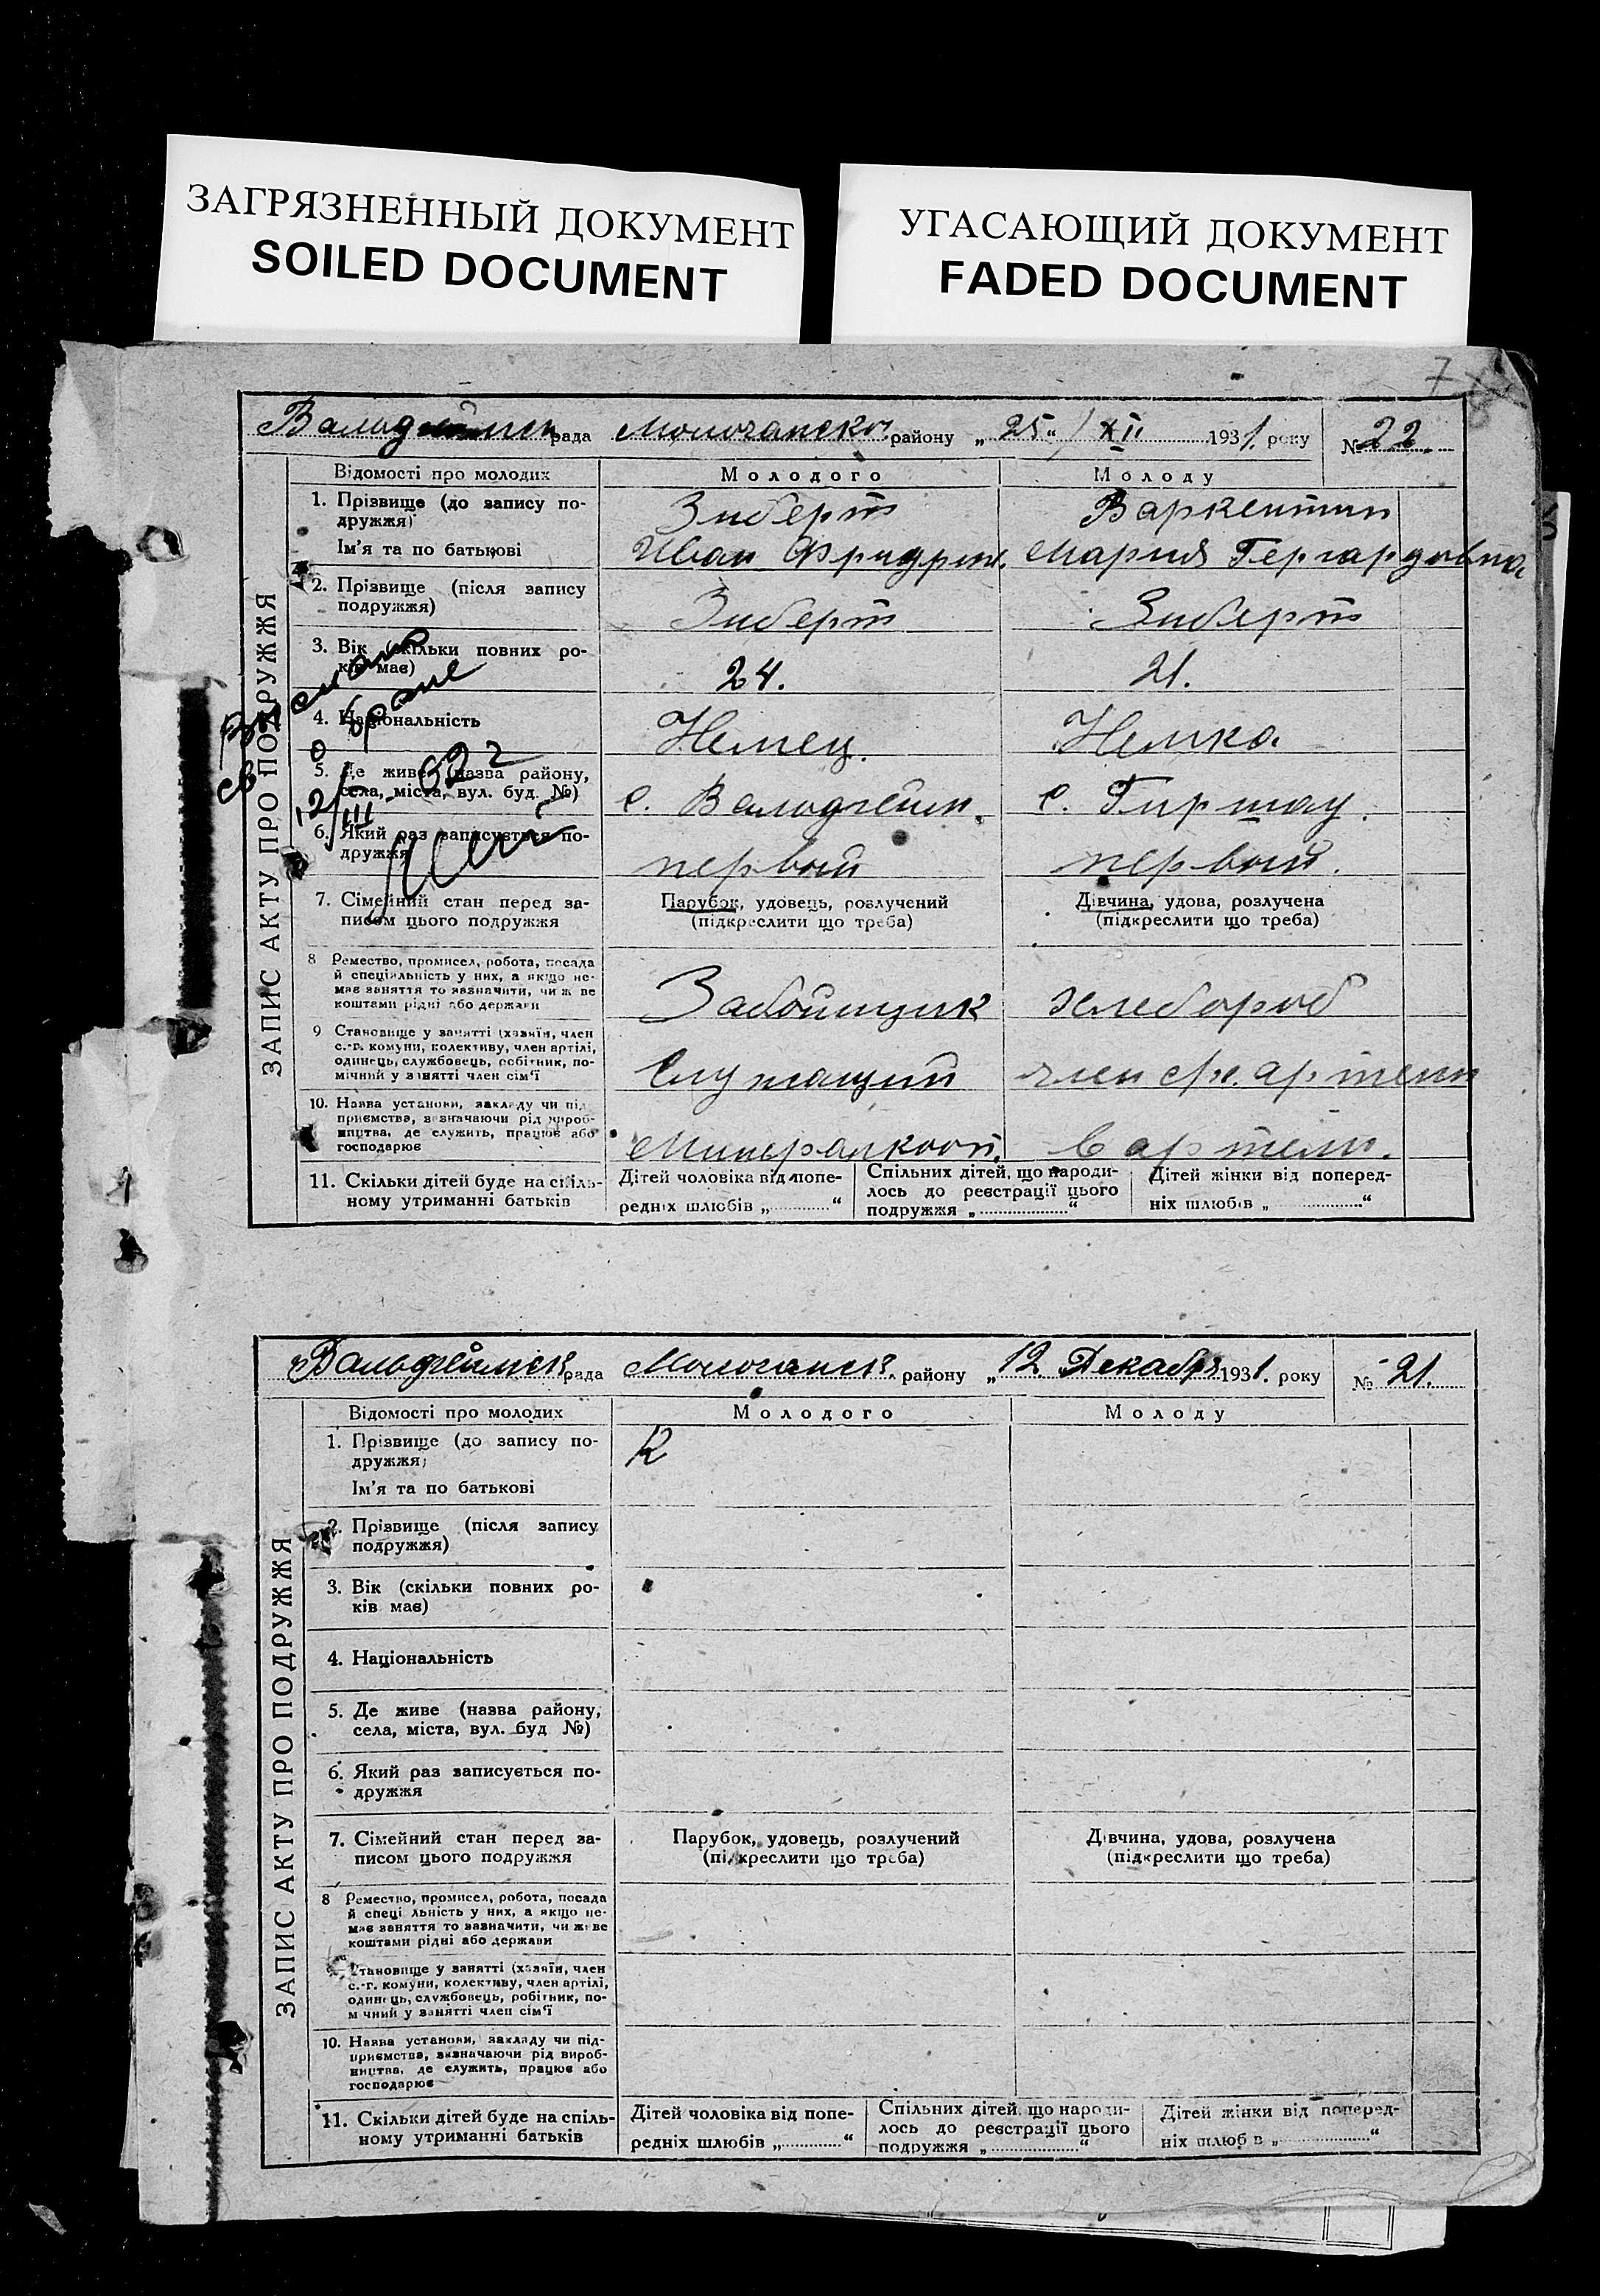 ЗАГРЯЗНЕННЫЙ ДОКУМЕНТ
SOILED DOCUMENT
УГАСАЮЩИЙ ДОКУМЕНТ
FADED DOCUMENT
7
рада Молочанског. району „25“ / XII 1931. року № 22
ЗАПИС АКТУ ПРО ПОДРУЖЖЯ
Відомості про молодих Молодого Молоду
1. Прізвище (до запису по- Зиберт Варкентин
дружжя)
Ім'я та по батькові Иван Фридрих. Мария Гергардовна
2. Прізвище (після запису Зиберт Зиберт
подружжя)
3. Вік (скільки повних ро- 24. 21.
ків має)
4. Національність Немец. Немка.
5. Де живе (назва району,
села, міста, вул. буд. №) с. Вальдгейм. с. Гиршау.
6. Який раз записується по-
дружжя первый первый.
7. Сімейний стан перед за- Парубок, удовець, розлучений Дівчина, удова, розлучена
писом цього подружжя (підкреслити що треба) (підкреслити що треба)
8 Ремество, промисел, робота, посада
й спеціяльність у них, а якщо не-
має заняття то зазначити, чи ж ве Забойщик хлебороб
коштами рідні або держави
9 Становище у занятті (хазяїн, член
с.-г. комуни, колективу, член артілі,
одинець, службовець, робітник, по- Служащий член с/х. артели
мічний у занятті член сім'ї
10. Назва установи, закладу чи під-
приємства, зазначаючи рід вироб-
ництва, де служить, працює або
господарює в артели.
11. Скільки дітей буде на спіль- Дітей чоловіка від попе- Спільних дітей, що народи- Дітей жінки від поперед-
ному утриманні батьків редніх шлюбів „............“ лось до реєстрації цього ніх шлюбів „..................“
подружжя „..................“
Взяхно
о браке
12/III - 62 г
Вальдгеймск. рада Молочанск. району „12. Декабря 1931. року № 21.
ЗАПИС АКТУ ПРО ПОДРУЖЖЯ
Відомості про молодих Молодого Молоду
1. Прізвище (до запису по-
дружжя)
Ім'я та по батькові
2. Прізвище (після запису
подружжя)
3. Вік (скільки повних ро-
ків має)
4. Національність
5. Де живе (назва району,
села, міста, вул. буд №)
6. Який раз записується по-
дружжя
7. Сімейний стан перед за- Парубок, удовець, розлучений Дівчина, удова, розлучена
писом цього подружжя (підкреслити що треба) (підкреслити що треба)
8 Ремество, промисел, робота, посада
й спеціяльність у них, а якщо не-
має заняття то зазначити, чи живе
коштами рідні або держави
Становище у занятті (хазяїн, член
с.-г. комуни, колективу, член артілі,
одинець, службовець, робітник, по-
мічний у занятті член сім'ї
10. Назва установи, закладу чи під-
приємства, зазначаючи рід вироб-
ництва, де служить, працює або
господарює
11. Скільки дітей буде на спіль- Дітей чоловіка від попе- Спільних дітей, що народи- Дітей жінки від поперед-
ному утриманні батьків редніх шлюбів „............“ лось до реєстрації цього ніх шлюбів „..................“
подружжя „..................“